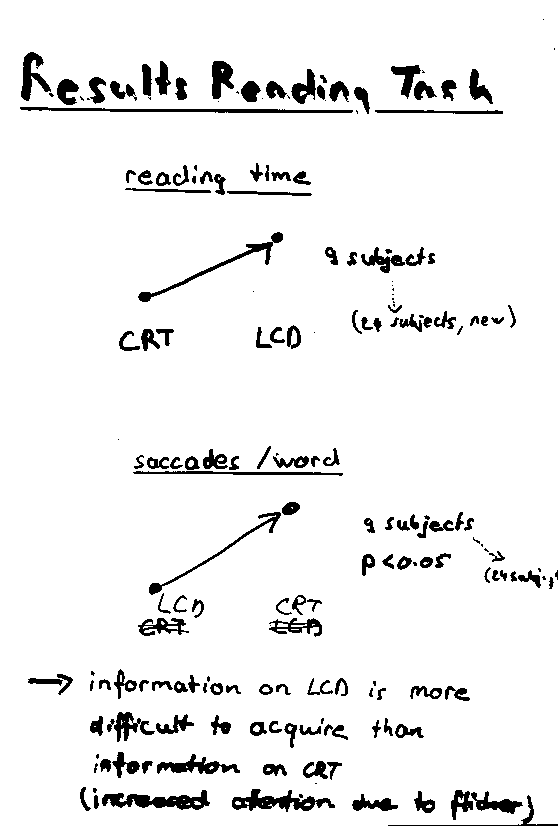 Results Reading Task
reading time
9 subjects
(24 subjects, new)
CRT LCD
saccades / word
9 subjects
p < 0.05
(24 subj.,
LCD CRT
CRT LCD
→ information on LCD is more
difficult to acquire than
information on CRT
(increased atention due to flicker)